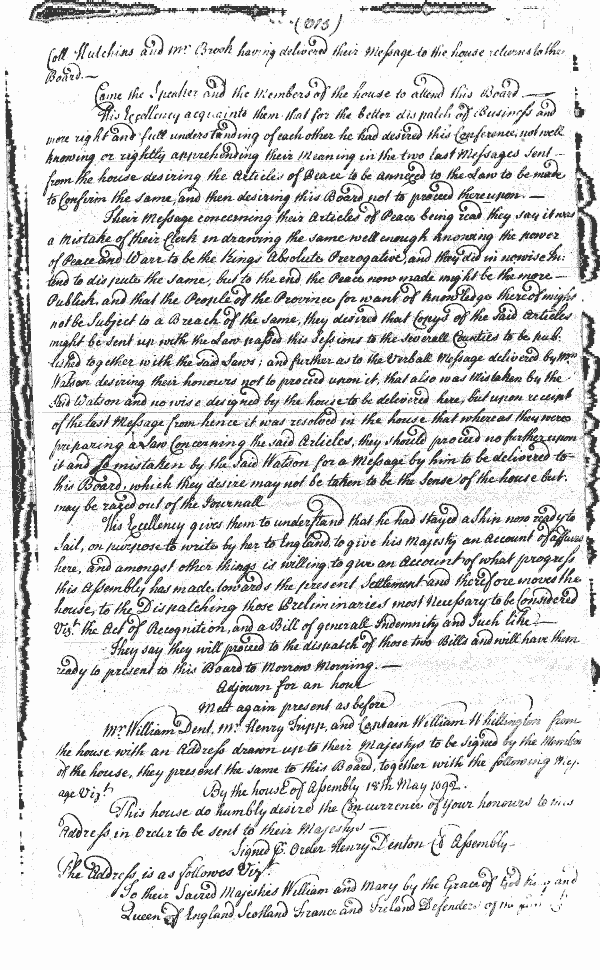 Coll Hutchins and Mr. Brook having delivered their Message to the house returns to the
Board.—
Came the Speaker and the Members of the house to attend this Board.—
His Excellency acquaints them that for the better dispatch of Business and
more right and full understanding of each other he had desired this Conference, not well
knowing or rightly apprehending their Meaning in the two last Messages sent—
from the house desiring the Articles of Peace to be annexed to the Law to be made
to Confirm the same, and then desiring this Board not to proceed thereupon.—
Their Message concerning their Articles of Peace being read they say it was
a mistake of their Clerk in drawing the same well enough knowing the power
of Peace and Warr to be the Kings Absolute Prerogative, and they did in nowise In:
tend to dispute the same, but to the end the Peace now made might be the more—
Publick, and that the People of the Province for want of knowledge thereof might
not be Subject to a Breach of the same, they desired that Copys of the said Articles
might be Sent up with the Law passed this Sessions to the Severall Counties to be pub:
lished together with the said Laws; and further as to the Verball Message delivered by Mr.
Watson desiring their honours not to proceed upon it, that also was mistaken by the
said Watson and no wise designed by the house to be delivered here, but upon receipt
of the last Message from hence it was resolved in the house that whereas they were
preparing a Law Concerning the said Articles, they should proceed no further upon
it and so mistaken by the Said Watson for a Message by him to be delivered to
this Board, which they desire may not be taken to be the Sense of the house but
may be razed out of the Journall
His Excellency gives them to understand that he had stayed a Ship now ready to
Sail, on purpose to write by her to England, to give his Majesty an Account of affairs
here, and amongst other things is willing to give an Account of what progress
this Assembly has made towards the present Settlement and therefore moves the
house, to the Dispatching those Preliminaries most Necessary to be Considered
Vizt. the Act of Recognition, and a Bill of generall Indemnity and Such like.—
They say they will proceed to the dispatch of those two Bills and will have them
ready to present to this Board to Morrow Morning.—
Adjourn for an hour
Mett again present as before
Mr. William Dent, Mr. Henry Tripp, and Captain William Whittington from
the house with an Address drawn up to their Majestys to be signed by the Members
of the house, they present the same to this Board, together with the following Mess:
age Vizt.
By the house of Assembly 18th May 1692.
This house do humbly desire the Concurrence of Your honours to this
Address in Order to be sent to their Majestys—
Signed P. Order Henry Denton Cl Assembly.
The Address is as followes Vizt.
To their Sacred Majesties William and Mary by the Grace of God King and
Queen of England Scotland France and Ireland Defenders of the